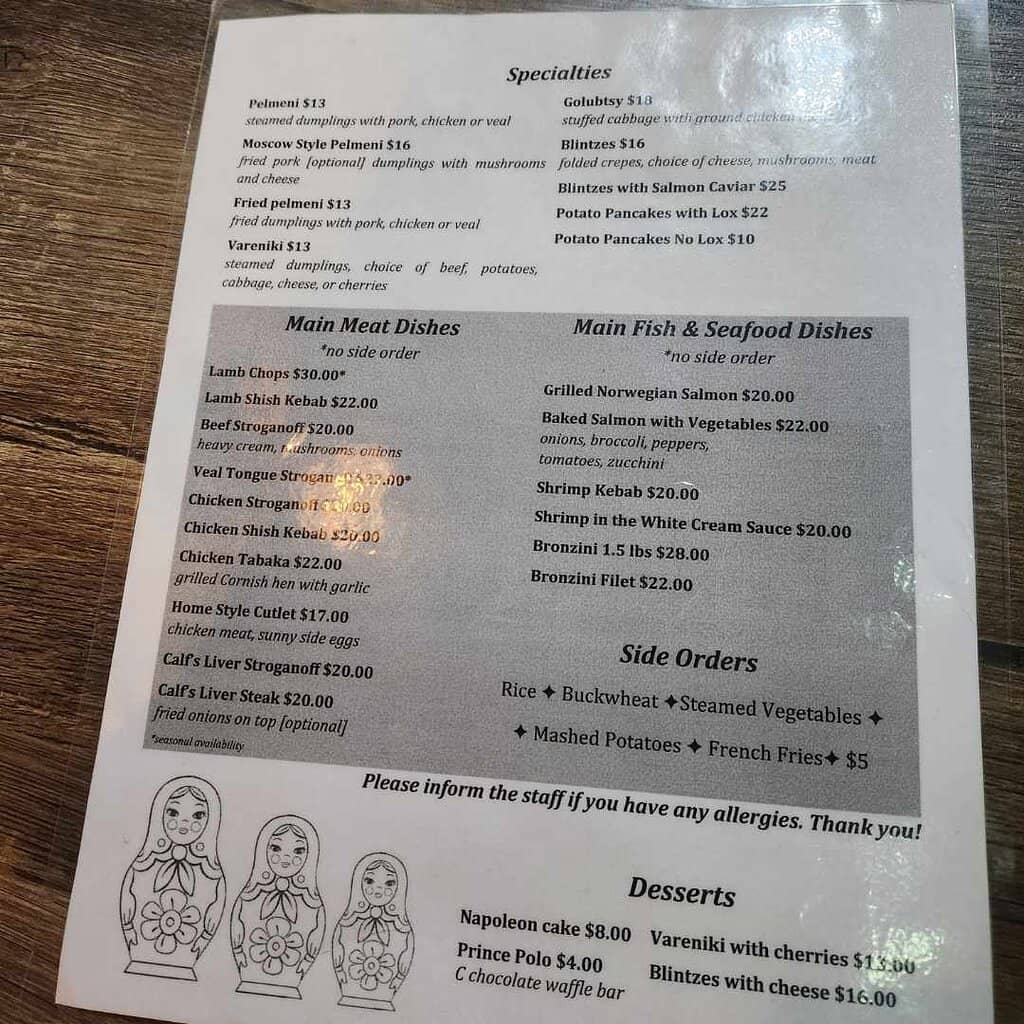 Specialties
Pelmeni $13
steamed dumplings with pork, chicken or veal
Moscow Style Pelmeni $16
fried pork [optional] dumplings with mushrooms
and cheese
Fried pelmeni $13
fried dumplings with pork, chicken or veal
Vareniki $13
steamed dumplings, choice of beef, potatoes,
cabbage, cheese, or cherries
Golubtsy $18
stuffed cabbage with ground chicken
Blintzes $16
folded crepes, choice of cheese, mushrooms, meat
Blintzes with Salmon Caviar $25
Potato Pancakes with Lox $22
Potato Pancakes No Lox $10
Main Meat Dishes
*no side order
Lamb Chops $30.00*
Lamb Shish Kebab $22.00
Beef Stroganoff $20.00
heavy cream, mushrooms, onions
Veal Tongue
Chicken Stroganoff
Chicken Shish Kebab $20.00
Chicken Tabaka $22.00
grilled Cornish hen with garlic
Home Style Cutlet $17.00
chicken meat, sunny side eggs
Calf's Liver Stroganoff $20.00
Calf's Liver Steak $20.00
fried onions on top [optional]
*seasonal availability
Main Fish & Seafood Dishes
*no side order
Grilled Norwegian Salmon $20.00
Baked Salmon with Vegetables $22.00
onions, broccoli, peppers,
tomatoes, zucchini
Shrimp Kebab $20.00
Shrimp in the White Cream Sauce $20.00
Bronzini 1.5 lbs $28.00
Bronzini Filet $22.00
Side Orders
Rice ✦ Buckwheat ✦Steamed Vegetables ✦
✦ Mashed Potatoes ✦ French Fries✦ $5
Please inform the staff if you have any allergies. Thank you!
Desserts
Napoleon cake $8.00
Prince Polo $4.00
C chocolate waffle bar
Vareniki with cherries $13.00
Blintzes with cheese $16.00